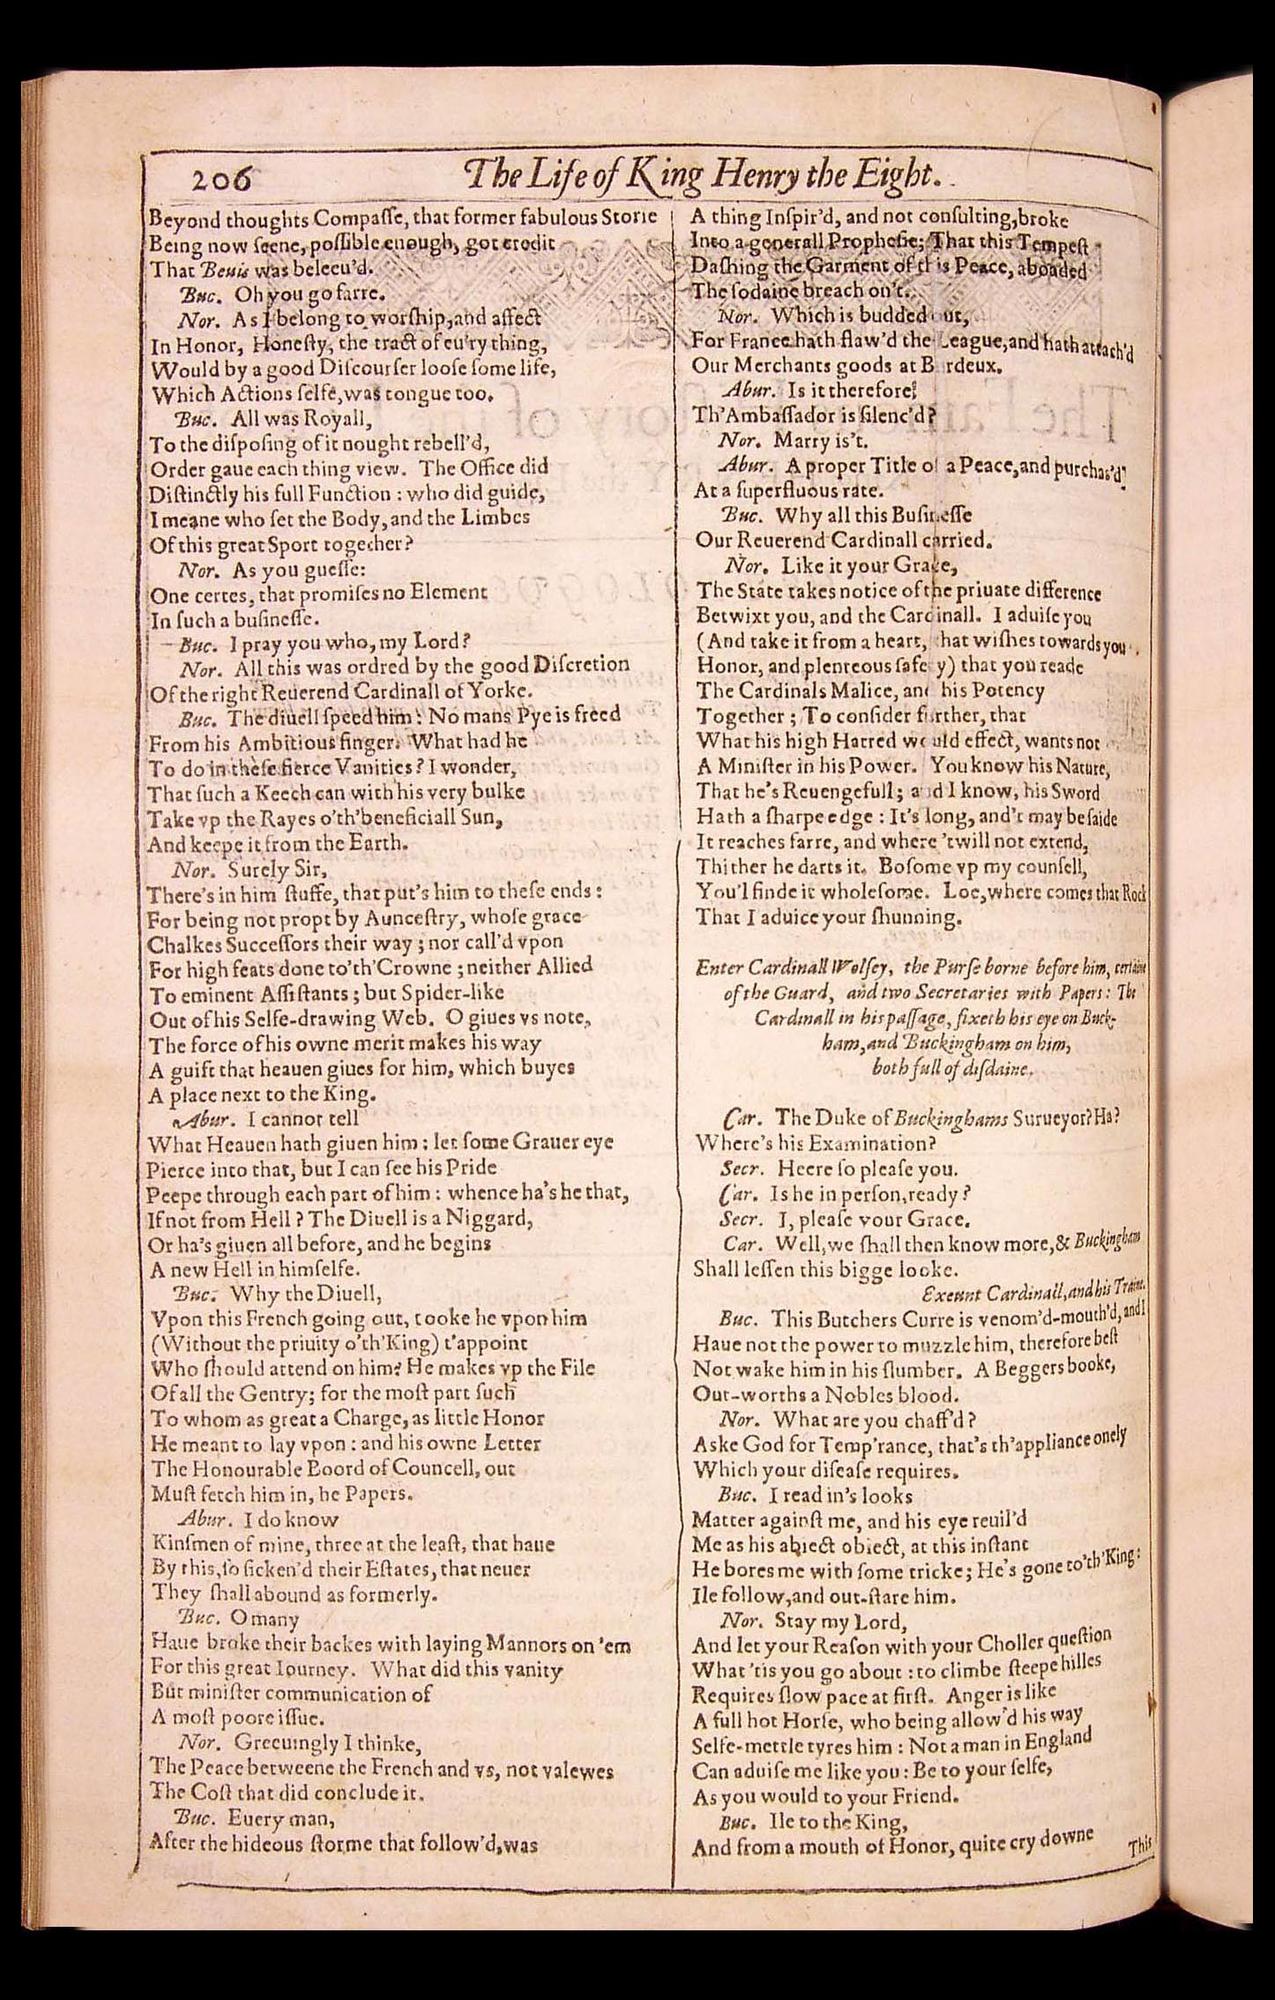 206
The Life of King Henry the Eight.
Beyond thoughts Compaſſe, that former fabulous Storie
Being now ſeene, poſſible enough, got credit
That Beuis was beleeu'd.
Buc. Oh you go farre.
Nor. As I belong to worſhip, and affect
In Honor, Honeſty, the tract of eu'ry thing,
Would by a good Diſcourſer looſe ſome life,
Which Actions ſelfe, was tongue too.
Buc. All was Royall,
To the diſpoſing of it nought rebell'd,
Order gaue each thing view. The Office did
Diſtinctly his full Function : who did guide,
I meane who ſet the Body, and the Limbes
Of this great Sport together?
Nor. As you gueſſe:
One certes, that promiſes no Element
In ſuch a buſineſſe.
Buc. I pray you who, my Lord?
Nor. All this was ordred by the good Diſcretion
Of the right Reuerend Cardinall of Yorke.
Buc. The diuell ſpeed him : No mans Pye is freed
From his Ambitious finger. What had he
To do in theſe fierce Vanities? I wonder,
That ſuch a Keech can with his very bulke
Take vp the Rayes o'th'beneficiall Sun,
And keepe it from the Earth.
Nor. Surely Sir,
There's in him ſtuffe, that put's him to theſe ends :
For being not propt by Aunceſtry, whoſe grace
Chalkes Succeſſors their way ; nor call'd vpon
For high feats done to'th'Crowne ; neither Allied
To eminent Aſſiſtants ; but Spider-like
Out of his Selfe-drawing Web. O giues vs note,
The force of his owne merit makes his way
A guift that heauen giues for him, which buyes
A place next to the King.
Abur. I cannot tell
What Heauen hath giuen him : let ſome Grauer eye
Pierce into that, but I can ſee his Pride
Peepe through each part of him : whence ha's he that,
If not from Hell? The Diuell is a Niggard,
Or ha's giuen all before, and he begins
A new Hell in himſelfe.
Buc. Why the Diuell,
Vpon this French going out, tooke he vpon him
(Without the priuity o'th'King) t'appoint
Who ſhould attend on him? He makes vp the File
Of all the Gentry; for the moſt part ſuch
To whom as great a Charge, as little Honor
He meant to lay vpon : and his owne Letter
The Honourable Boord of Councell, out
Muſt fetch him in, he Papers.
Abur. I do know
Kinſmen of mine, three at the leaſt, that haue
By this, ſo ſicken'd their Eſtates, that neuer
They ſhall abound as formerly.
Buc. O many
Haue broke their backes with laying Mannors on 'em
For this great Iourney. What did this vanity
But miniſter communication of
A moſt poore iſſue.
Nor. Greeuingly I thinke,
The Peace betweene the French and vs, not valewes
The Coſt that did conclude it.
Buc. Euery man,
After the hideous ſtorme that follow'd, was
A thing Inſpir'd, and not conſulting, broke
Into a generall Propheſie; That this Tempeſt
Daſhing the Garment of this Peace, aboaded
The ſodaine breach on't.
Nor. Which is budded out,
For France hath flaw'd the League, and hath attach'd
Our Merchants goods at Burdeux.
Abur. Is it therefore
Th'Ambaſſador is ſilenc'd?
Nor. Marry is't.
Abur. A proper Title of a Peace, and purchas'd
At a ſuperfluous rate.
Buc. Why all this Buſineſſe
Our Reuerend Cardinall carried.
Nor. Like it your Grace,
The State takes notice of the priuate difference
Betwixt you, and the Cardinall. I aduiſe you
(And take it from a heart, that wiſhes towards you
Honor, and plenteous ſafety) that you reade
The Cardinals Malice, and his Potency
Together ; To conſider further, that
What his high Hatred would effect, wants not
A Miniſter in his Power. You know his Nature,
That he's Reuengefull ; and I know, his Sword
Hath a ſharpe edge : It's long, and't may be ſaide
It reaches farre, and where 'twill not extend,
Thither he darts it. Boſome vp my counſell,
You'l finde it wholeſome. Loe, where comes that Rock
That I aduice your ſhunning.
Enter Cardinall Wolſey, the Purſe borne before him, certaine
of the Guard, and two Secretaries with Papers : The
Cardinall in his paſſage, fixeth his eye on Buck-
ham, and Buckingham on him,
both full of diſdaine.
Car. The Duke of Buckinghams Surueyor? Ha?
Where's his Examination?
Secr. Heere ſo pleaſe you.
Car. Is he in perſon, ready?
Secr. I, pleaſe your Grace.
Car. Well, we ſhall then know more, & Buckingham
Shall leſſen this bigge looke.
Exeunt Cardinall, and his Traine.
Buc. This Butchers Curre is venom'd-mouth'd, and I
Haue not the power to muzzle him, therefore beſt
Not wake him in his ſlumber. A Beggers booke,
Out-worths a Nobles blood.
Nor. What are you chaff'd?
Aske God for Temp'rance, that's th'appliance onely
Which your diſeaſe requires.
Buc. I read in's looks
Matter againſt me, and his eye reuil'd
Me as his abiect obiect, at this inſtant
He bores me with ſome tricke; He's gone to'th'King:
Ile follow, and out-ſtare him.
Nor. Stay my Lord,
And let your Reaſon with your Choller queſtion
What 'tis you go about : to climbe ſteepe hilles
Requires ſlow pace at firſt. Anger is like
A full hot Horſe, who being allow'd his way
Selfe-mettle tyres him : Not a man in England
Can aduiſe me like you : Be to your ſelfe,
As you would to your Friend.
Buc. Ile to the King,
And from a mouth of Honor, quite cry downe
This